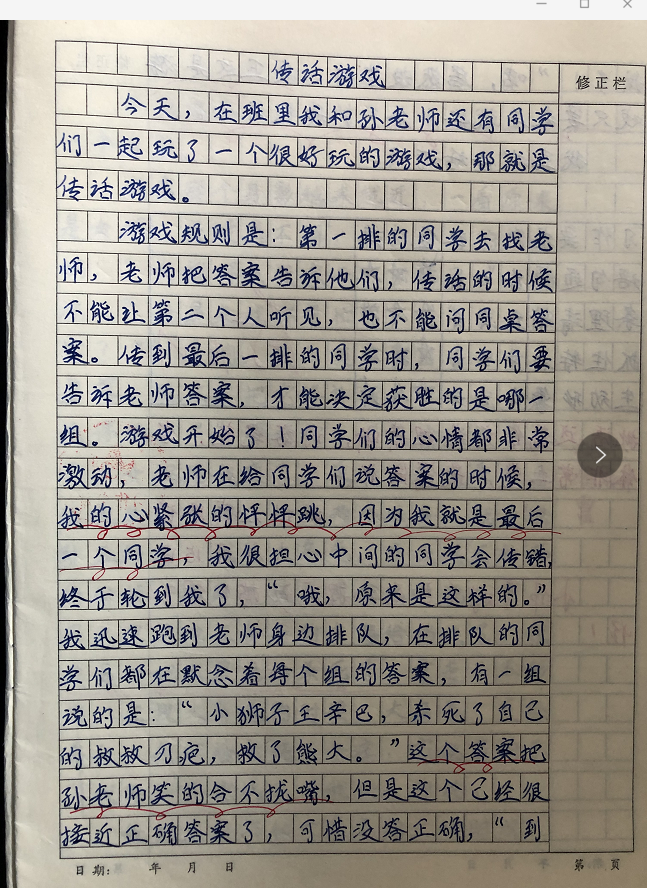 传话游戏
修正栏
今天，在班里我和孙老师还有同学
们一起玩了一个很好玩的游戏，那就是
传话游戏。
游戏规则是：第一排的同学去找老
师，老师把答案告诉他们，传话的时候
不能让第二个人听见，也不能问同桌答
案。传到最后一排的同学时，同学们要
告诉老师答案，才能决定获胜的是哪一
组。游戏开始了！同学们的心情都非常
激动，老师在给同学们说答案的时候，
我的心紧张的怦怦跳，因为我就是最后
一个同学，我很担心中间的同学会传错，
终于轮到我了，“哦，原来是这样的。”
我迅速跑到老师身边排队，在排队的同
学们都在默念着每个组的答案，有一组
说的是：“小狮子王辛巴，杀死了自己
的叔叔刀疤，救了熊大。”这个答案把
孙老师笑的合不拢嘴，但是这个已经很
接近正确答案了，可惜没答正确，“到
日期： 年 月 日
第 页